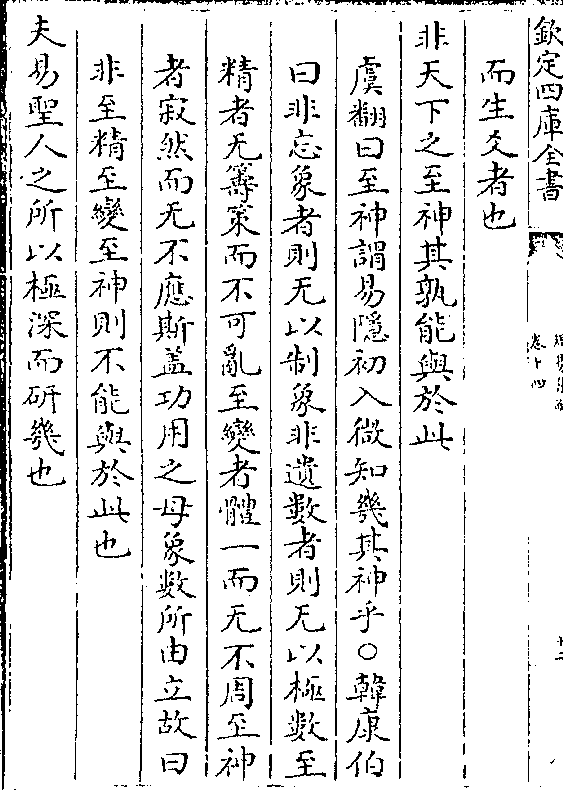 欽定四庫全書
卷十四
而生爻者也
非天下之至神其孰能與於此
虞翻曰至神謂易隱初入微知幾其神乎○韓康伯
曰非忘象者則无以制象非遺數者則无以極數至
精者无籌策而不可亂至變者體一而无不周至神
者寂然而无不應斯蓋功用之母象數所由立故曰
非至精至變至神則不能與於此也
夫易聖人之所以極深而研幾也